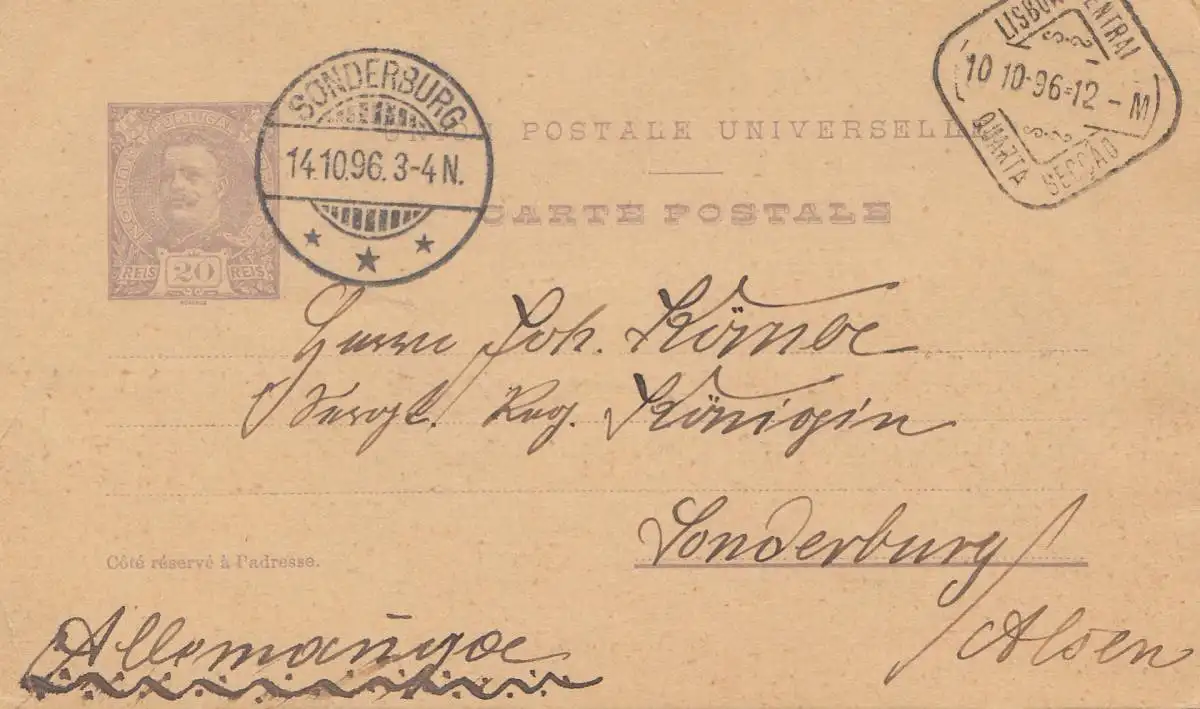 LISBOA CENTRAL
10 10-96=12-M
QUARTA SECÇÃO
SONDERBURG
14.10.96.3-4N.
PORTUGAL
REIS 20 REIS
UNION POSTALE UNIVERSELLE
CARTE POSTALE
Herrn Joh.
Sergt. Reg. Königin
Sonderburg/
Alsen
Côté réservé à l'adresse.
Allemange